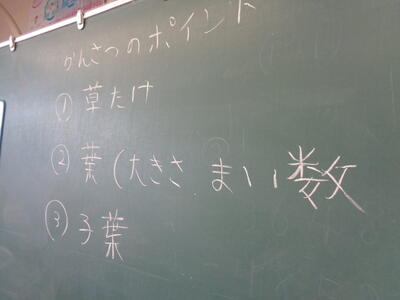 かんさつのポイント
① 草たけ
② 葉(大きさ まい数
③ 子葉